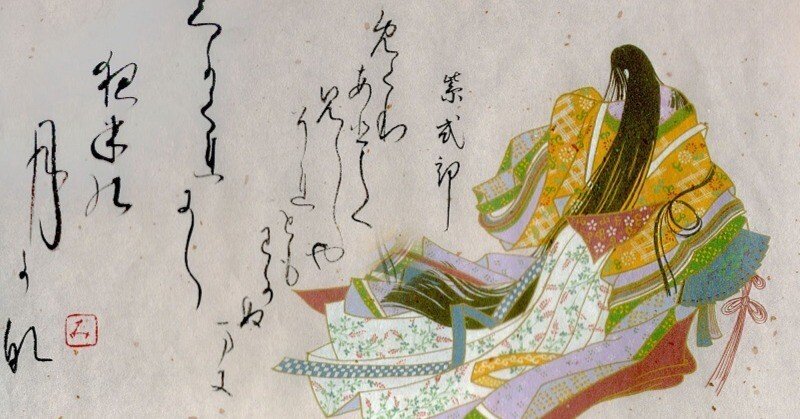 紫式部
めくり
あひて
見し也
それとも
わかぬ
まに
かくれにし
夜半の
月かな